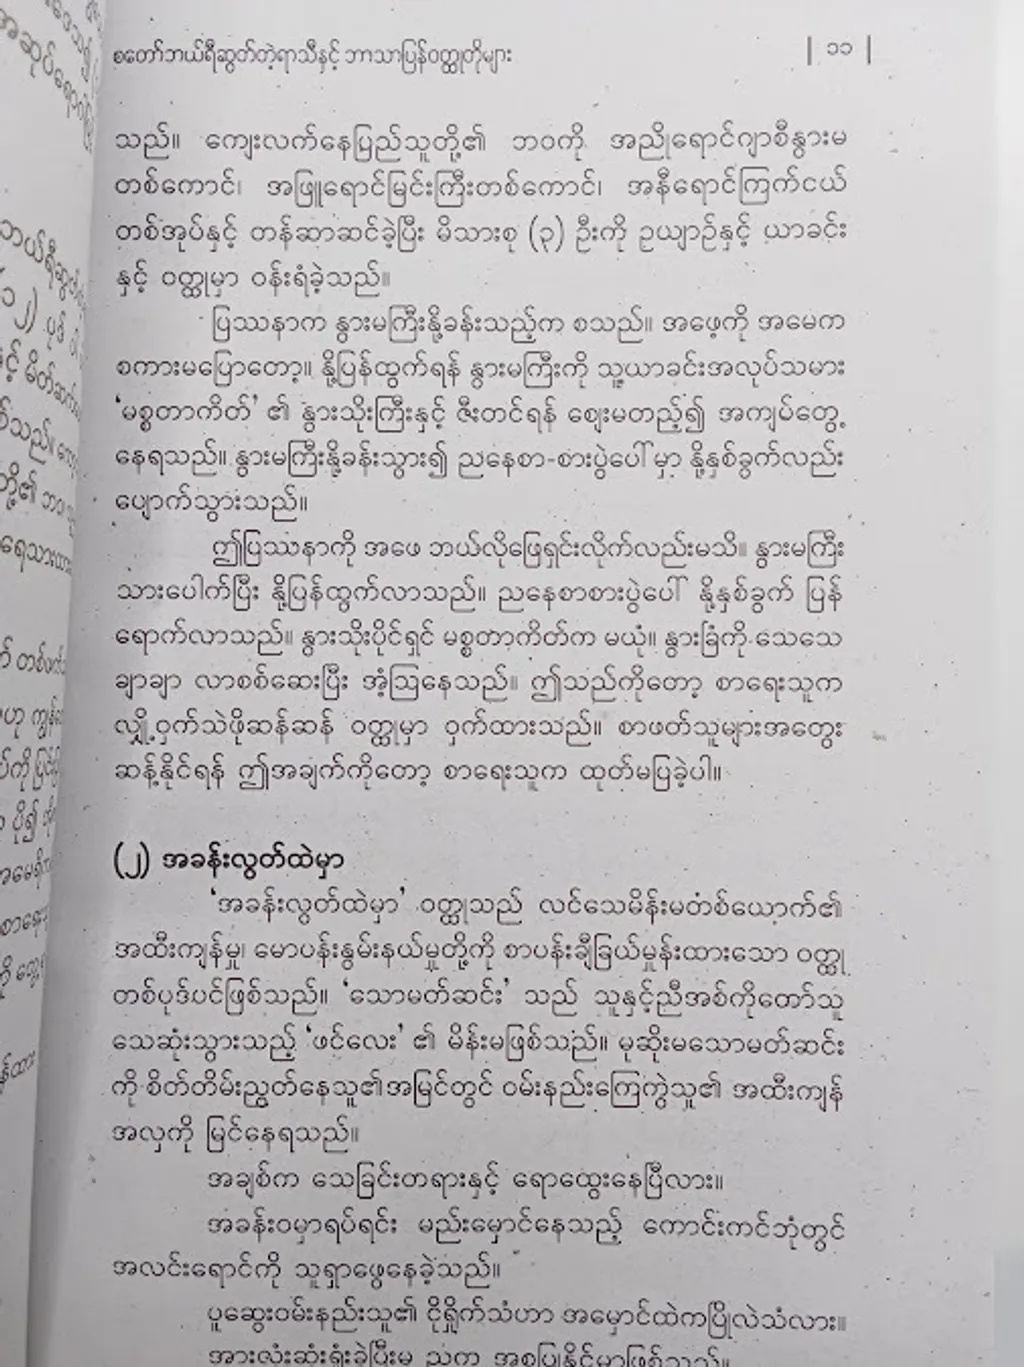 စတော်ဘယ်ရီဆွတ်တဲ့ရာသီနှင့် ဘာသာပြန်ဝတ္ထုတိုများ | ၁၁ |
သည်။ ကျေးလက်နေပြည်သူတို့၏ ဘဝကို အညိုရောင်ဂျာစီနွားမ
တစ်ကောင်၊ အဖြူရောင်မြင်းကြီးတစ်ကောင်၊ အနီရောင်ကြက်ငယ်
တစ်အုပ်နှင့် တန်ဆာဆင်ခဲ့ပြီး မိသားစု (၃) ဦးကို ဥယျာဉ်နှင့် ယာခင်း
နှင့် ဝတ္ထုမှာ ဝန်းရံခဲ့သည်။
ပြဿနာက နွားမကြီးနို့ခန်းသည့်က စသည်။ အဖေ့ကို အမေက
စကားမပြောတော့။ နို့ပြန်ထွက်ရန် နွားမကြီးကို သူ့ယာခင်းအလုပ်သမား
‘မစ္စတာကိတ်’ ၏ နွားသိုးကြီးနှင့် ဇီးတင်ရန် ဈေးမတည့်၍ အကျပ်တွေ့
နေရသည်။ နွားမကြီးနို့ခန်းသွား၍ ညနေစာ-စားပွဲပေါ်မှာ နို့နှစ်ခွက်လည်း
ပျောက်သွားသည်။
ဤပြဿနာကို အဖေ ဘယ်လိုဖြေရှင်းလိုက်လည်းမသိ။ နွားမကြီး
သားပေါက်ပြီး နို့ပြန်ထွက်လာသည်။ ညနေစာစားပွဲပေါ် နို့နှစ်ခွက် ပြန်
ရောက်လာသည်။ နွားသိုးပိုင်ရှင် မစ္စတာကိတ်က မယုံ။ နွားခြံကို သေသေ
ချာချာ လာစစ်ဆေးပြီး အံ့ဩနေသည်။ ဤသည်ကိုတော့ စာရေးသူက
လျှို့ဝှက်သဲဖိုဆန်ဆန် ဝတ္ထုမှာ ဝှက်ထားသည်။ စာဖတ်သူများအတွေး
ဆန့်နိုင်ရန် ဤအချက်ကိုတော့ စာရေးသူက ထုတ်မပြခဲ့ပါ။
(၂) အခန်းလွတ်ထဲမှာ
‘အခန်းလွတ်ထဲမှာ’ ဝတ္ထုသည် လင်သေမိန်းမတစ်ယောက်၏
အထီးကျန်မှု၊ မောပန်းနွမ်းနယ်မှုတို့ကို စာပန်းချီခြယ်မှုန်းထားသော ဝတ္ထု
တစ်ပုဒ်ပင်ဖြစ်သည်။ ‘သောမတ်ဆင်း’ သည် သူနှင့်ညီအစ်ကိုတော်သူ
သေဆုံးသွားသည့် ‘ဖင်လေး’ ၏ မိန်းမဖြစ်သည်။ မုဆိုးမသောမတ်ဆင်း
ကို စိတ်တိမ်းညွတ်နေသူ၏အမြင်တွင် ဝမ်းနည်းကြေကွဲသူ၏ အထီးကျန်
အလှကို မြင်နေရသည်။
အချစ်က သေခြင်းတရားနှင့် ရောထွေးနေပြီလား။
အခန်းဝမှာရပ်ရင်း မည်းမှောင်နေသည့် ကောင်းကင်ဘုံတွင်
အလင်းရောင်ကို သူရှာဖွေနေခဲ့သည်။
ပူဆွေးဝမ်းနည်းသူ၏ ငိုရှိုက်သံဟာ အမှောင်ထဲကပြိုလဲသံလား။